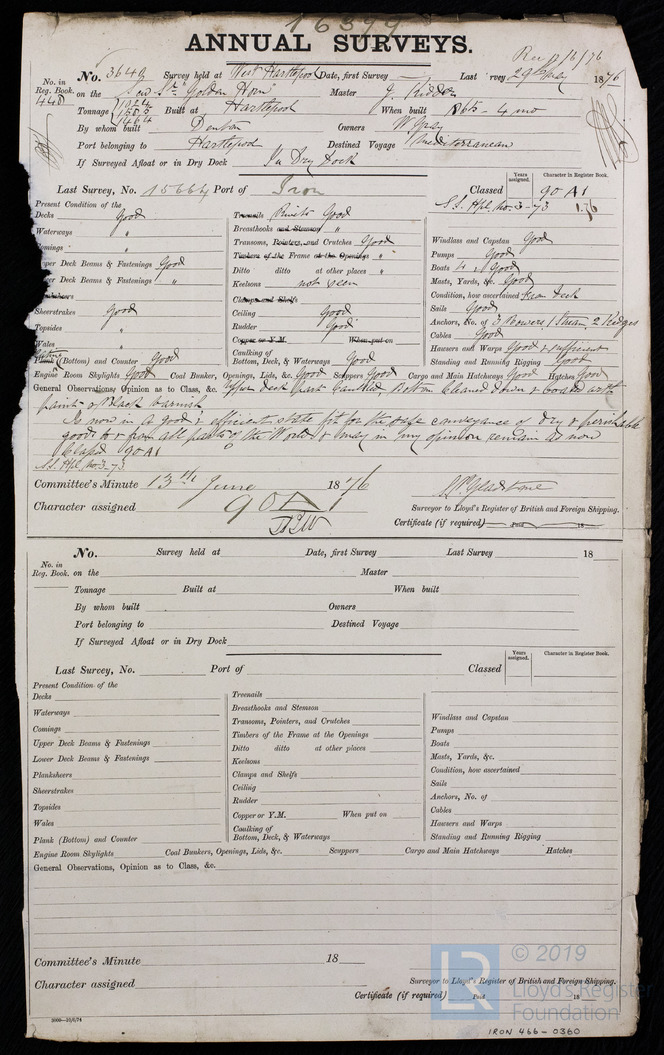 16399
ANNUAL SURVEYS.
No. 3649 Survey held at West Hartlepool Date, first Survey — Last Survey 29th May 1876
No. in Reg. Book. on the Screw Str Golden Horn Master J. Kiddon
448
Tonnage 1024 1585 1464 Built at Hartlepool When built 1865 - 4 mo
By whom built Denton Owners W Gray
Port belonging to Hartlepool Destined Voyage Mediterranean
If Surveyed Afloat or in Dry Dock In Dry Dock
Years assigned. Character in Register Book.
Last Survey, No. 15664 Port of Iron Classed 90 A1
S.S. Hpl. No. 3-73 1.76
Present Condition of the
Decks Good
Waterways "
Comings "
Upper Deck Beams & Fastenings Good
Lower Deck Beams & Fastenings "
Planksheers
Sheerstrakes Good
Topsides "
Wales "
Plank (Bottom) and Counter Good
Treenails Rivets Good
Breasthooks and Stemson "
Transoms, Pointers, and Crutches Good
Timbers of the Frame at the Openings "
Ditto ditto at other places "
Keelsons not seen
Clamps and Shelfs
Ceiling Good
Rudder Good
Copper or Y.M. When put on
Caulking of Bottom, Deck, & Waterways Good
Windlass and Capstan Good
Pumps Good
Boats 4, Good
Masts, Yards, &c. Good
Condition, how ascertained from Deck
Sails Good
Anchors, No. of 3 Bowers 1 Stream 2 Kedges
Cables Good
Hawsers and Warps Good & sufficient
Standing and Running Rigging Good
Engine Room Skylights Good Coal Bunker, Openings, Lids, &c. Good Scuppers Good Cargo and Main Hatchways Good Hatches Good
General Observations, Opinion as to Class, &c. Upper deck part Caulked, Bottom Cleaned down & coated with
paint & Black varnish
Is now in a good & efficient state fit for the safe conveyance of Dry & perishable
goods to & from all parts of the World & may in my opinion remain as now
Classed 90 A1
S.S. Hpl. No. 3-73
Committee's Minute 13th June 1876
Character assigned 90 A1
Surveyor to Lloyd's Register of British and Foreign Shipping.
Certificate (if required) Paid 18
No. Survey held at Date, first Survey Last Survey 18
No. in Reg. Book. on the Master
Tonnage Built at When built
By whom built Owners
Port belonging to Destined Voyage
If Surveyed Afloat or in Dry Dock
Years assigned. Character in Register Book.
Last Survey, No. Port of Classed
Present Condition of the
Decks
Waterways
Comings
Upper Deck Beams & Fastenings
Lower Deck Beams & Fastenings
Planksheers
Sheerstrakes
Topsides
Wales
Plank (Bottom) and Counter
Treenails
Breasthooks and Stemson
Transoms, Pointers, and Crutches
Timbers of the Frame at the Openings
Ditto ditto at other places
Keelsons
Clamps and Shelfs
Ceiling
Rudder
Copper or Y.M. When put on
Caulking of Bottom, Deck, & Waterways
Windlass and Capstan
Pumps
Boats
Masts, Yards, &c.
Condition, how ascertained
Sails
Anchors, No. of
Cables
Hawsers and Warps
Standing and Running Rigging
Engine Room Skylights Coal Bunkers, Openings, Lids, &c. Scuppers Cargo and Main Hatchways Hatches
General Observations, Opinion as to Class, &c.
Committee's Minute 18
Character assigned
Surveyor to Lloyd's Register of British and Foreign Shipping.
Certificate (if required) Paid 18
LR © 2019
Lloyd's Register
Foundation
IRON 466-0360